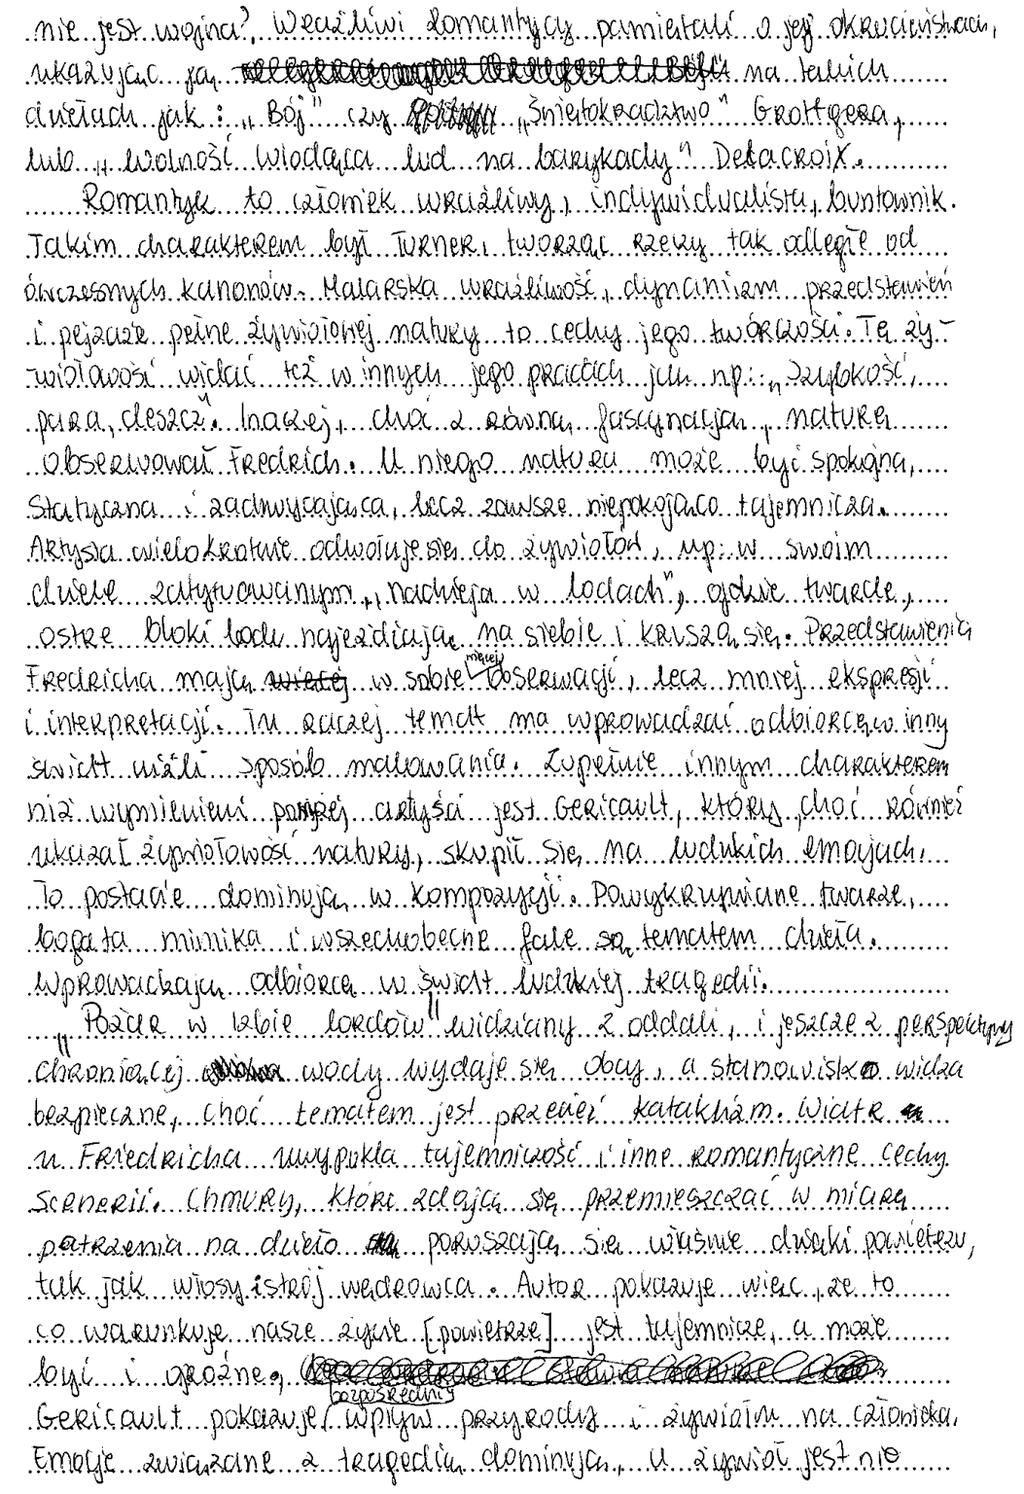 nie jest wojna? Wrażliwi Romantycy pamiętali o jej okrucieństwach,
ukazując ją na takich
dziełach jak: „Bój" czy „Świętokradztwo" Grottgera,
lub „Wolność wiodąca lud na barykady" Delacroix.
Romantyk to człowiek wrażliwy, indywidualista, buntownik.
Takim charakterem był Turner, tworząc rzeczy tak odległe od
ówczesnych kanonów. Malarska wrażliwość, dynamizm przedstawień
i pejzaże pełne żywiołowej natury to cechy jego twórczości. Tę ży-
wiołowość widać też w innych jego pracach jak np: „Szybkość,
para, deszcz". Inaczej, choć z równą fascynacją, naturę
obserwował Fredrich. U niego natura może być spokojna,
statyczna i zachwycająca, lecz zawsze niepokojąco tajemnicza.
Artysta wielokrotnie odwołuje się do żywiołów, np: w swoim
dziele zatytuowanym „nadzieja w lodach", gdzie twarde,
ostre bloki lodu najeżdżają na siebie i kruszą się. Przedstawienia
Fredricha mają więcej w sobie obserwacji, lecz mniej ekspresji
i interpretacji. Tu raczej temat ma wprowadzać odbiorcę w inny
świat niżli sposób malowania. Zupełnie innym charakterem
niż wymienieni artyści jest Gericault, który, choć również
ukazał żywiołowość natury, skupił się na ludzkich emocjach.
To postacie dominują w kompozycji. Powykrzywiane twarze,
bogata mimika i wszechobecne fale są tematem dzieła.
Wprowadzają odbiorcę w świat ludzkiej tragedii.
„Pożar w Izbie lordów" widziany z oddali, i jeszcze z perspektywy
chroniącej wody wydaje się obcy, a stanowisko widza
bezpieczne, choć tematem jest przecież kataklizm. Wiatr
u Friedricha uwypukla tajemniczość i inne romantyczne cechy
scenerii. Chmury, które zdają się przemieszczać w miarę
patrzenia na dzieło poruszają się właśnie dzięki powietrzu,
tak jak włosy i strój wędrowca. Autor pokazuje więc, że to
co warunkuje nasze życie [powietrze] jest tajemnicze, a może
być i groźne.
Gericault pokazuje bezpośredni wpływ przyrody i żywiołu na człowieka.
Emocje związane z tragedią dominują, a żywioł jest nie